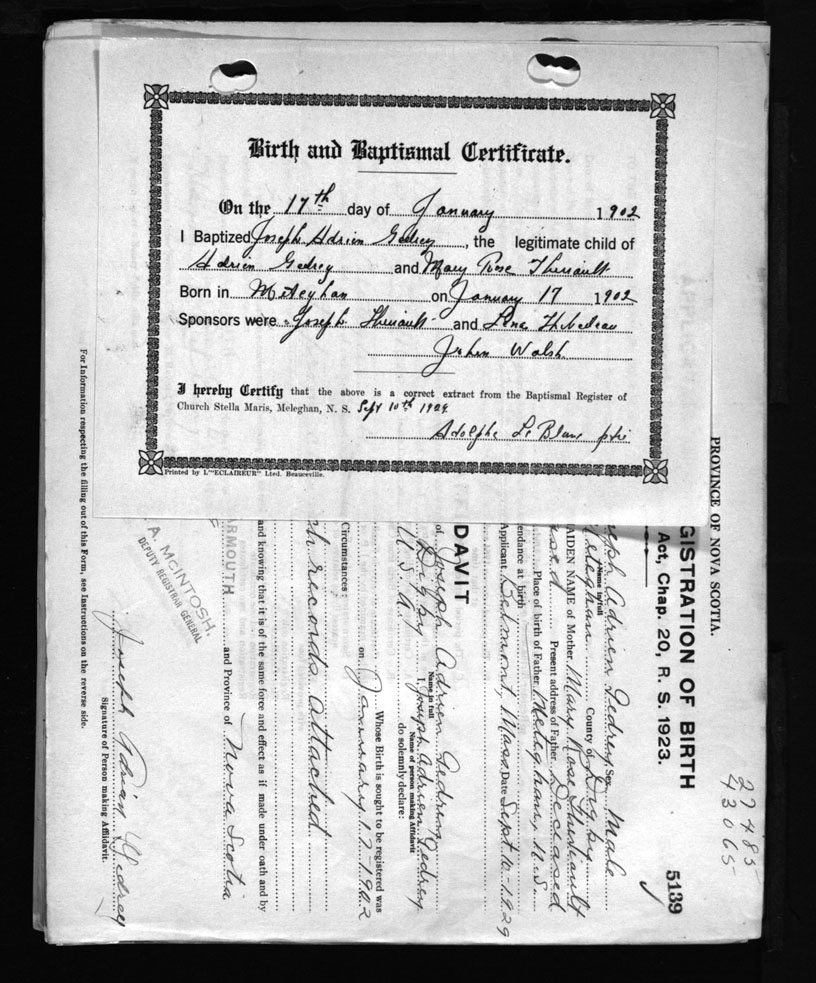 Birth and Baptismal Certificate.
On the 17th day of January 1902
I Baptized Joseph Adrien Gedrey, the legitimate child of
Adrien Gedrey and Mary Rose Theriault
Born in Meteghan on January 17 1902
Sponsors were Joseph Theriault and Thibodeau
John Walsh
I hereby Certify that the above is a correct extract from the Baptismal Register of
Church Stella Maris, Meleghan, N. S. Sept 10th 1929
Adolphe Le Blanc ptre
Printed by L'"ECLAIREUR" Lted. Beauceville.
PROVINCE OF NOVA SCOTIA.
GISTRATION OF BIRTH
Act, Chap. 20, R. S. 1923.
5139
27485
43065
eph Adrien Gedrey Sex Male
Name in full
eteghan County of Digby
AIDEN NAME of Mother Mary Rose Theriault
sed Present address of Father Deceased
Place of birth of Father Meteghan, N.S.
endance at birth
Applicant Belmont, Mass Date Sept 10-1929
DAVIT
of Joseph Adrien Gedrey
Name in full
I, Joseph Adrien Gedrey
Name of person making Affidavit
Digby
U.S.A. do solemnly declare:
Whose Birth is sought to be registered was
on January 17-1902
Circumstances:
ch records attached
and knowing that it is of the same force and effect as if made under oath and by
ARMOUTH and Province of Nova Scotia
A. McINTOSH,
DEPUTY REGISTRAR GENERAL
Joseph Adrian Gedrey
Signature of Person making Affidavit.
For Information respecting the filling out of this Form, see Instructions on the reverse side.